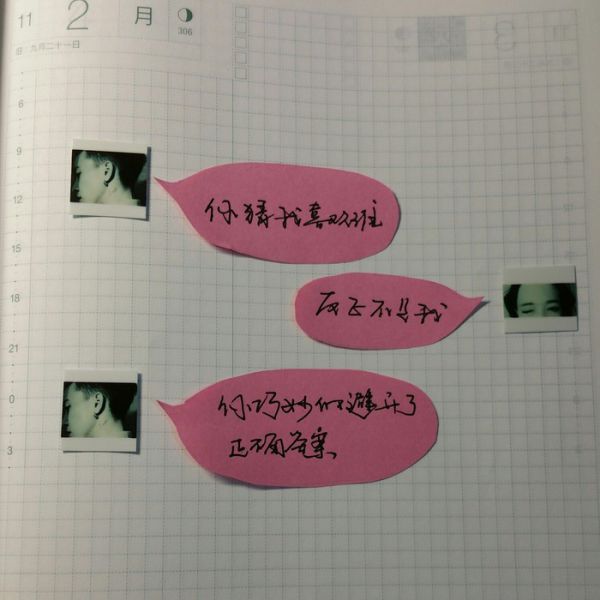 11 2 月
306
旧 九月二十一日
6
9
12
你猜我喜欢谁
15
18
反正不是我
21
0
你巧妙的避开了
正确答案
3